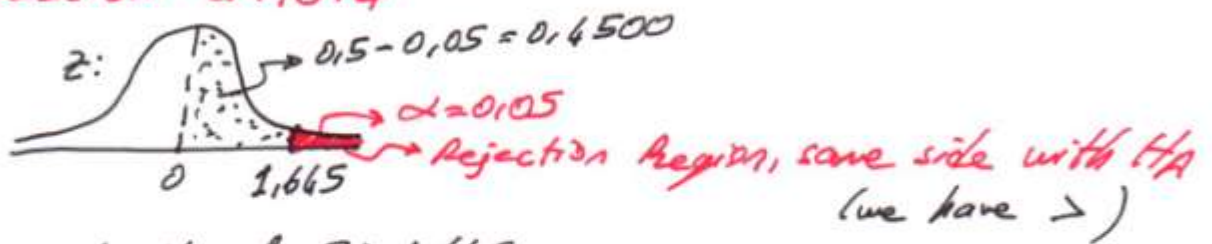 z:
0,5-0,05=0,4500
α=0,05
Rejection Region, same side with HA
0 1,645
(we have >)